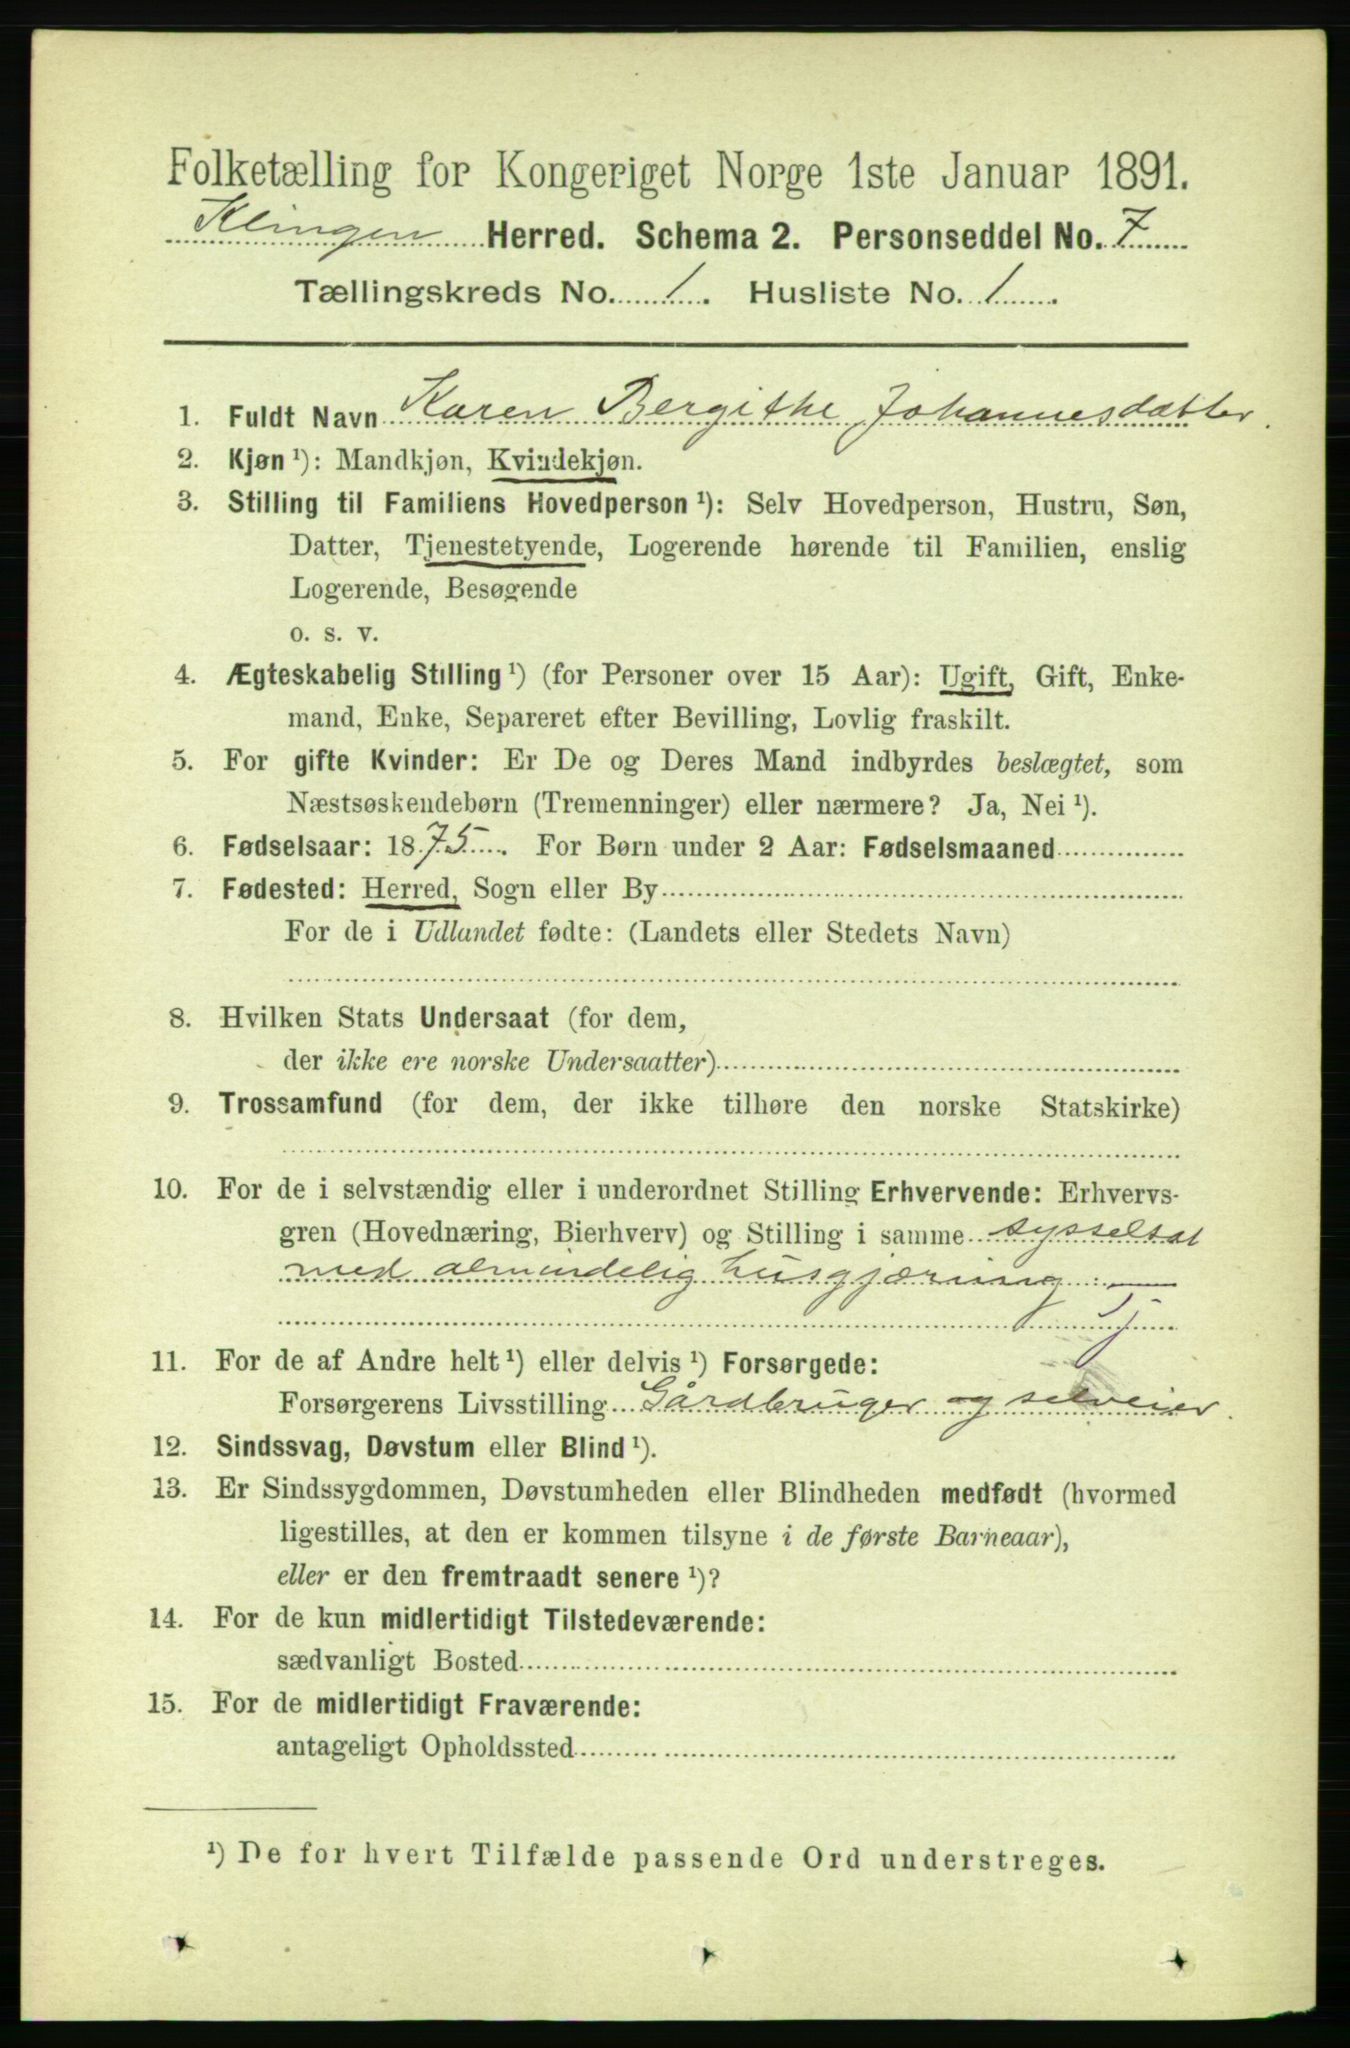 Folketælling for Kongeriget Norge 1ste Januar 1891.
Klingen Herred. Schema 2. Personseddel No. 7
Tællingskreds No. 1. Husliste No. 1.
1. Fuldt Navn Karen Bergithe Johannesdatter.
2. Kjøn ¹): Mandkjøn, Kvindekjøn.
3. Stilling til Familiens Hovedperson ¹): Selv Hovedperson, Hustru, Søn,
Datter, Tjenestetyende, Logerende hørende til Familien, enslig
Logerende, Besøgende
o. s. v.
4. Ægteskabelig Stilling ¹) (for Personer over 15 Aar): Ugift, Gift, Enke-
mand, Enke, Separeret efter Bevilling, Lovlig fraskilt.
5. For gifte Kvinder: Er De og Deres Mand indbyrdes beslægtet, som
Næstsøskendebørn (Tremenninger) eller nærmere? Ja, Nei ¹).
6. Fødselsaar: 1875. For Børn under 2 Aar: Fødselsmaaned
7. Fødested: Herred, Sogn eller By
For de i Udlandet fødte: (Landets eller Stedets Navn)
8. Hvilken Stats Undersaat (for dem,
der ikke ere norske Undersaatter)
9. Trossamfund (for dem, der ikke tilhøre den norske Statskirke)
10. For de i selvstændig eller i underordnet Stilling Erhvervende: Erhvervs-
gren (Hovednæring, Bierhverv) og Stilling i samme sysselsat
med almindelig husgjæring
Tj
11. For de af Andre helt ¹) eller delvis ¹) Forsørgede:
Forsørgerens Livsstilling Gårdbruger og selveier.
12. Sindssvag, Døvstum eller Blind ¹).
13. Er Sindssygdommen, Døvstumheden eller Blindheden medfødt (hvormed
ligestilles, at den er kommen tilsyne i de første Barneaar),
eller er den fremtraadt senere ¹)?
14. For de kun midlertidigt Tilstedeværende:
sædvanligt Bosted
15. For de midlertidigt Fraværende:
antageligt Opholdssted
¹) De for hvert Tilfælde passende Ord understreges.